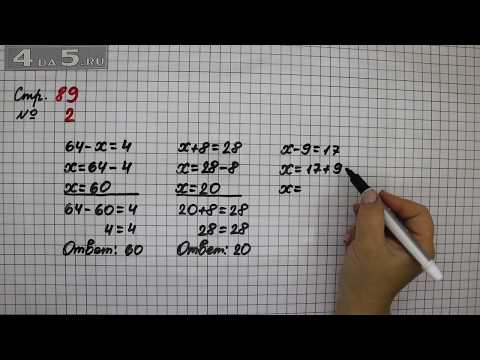 4 DA 5.RU
Стр. 89
№ 2
64-x=4
x=64-4
x=60
64-60=4
4=4
Ответ: 60
x+8=28
x=28-8
x=20
20+8=28
28=28
Ответ: 20
x-9=17
x=17+9
x=